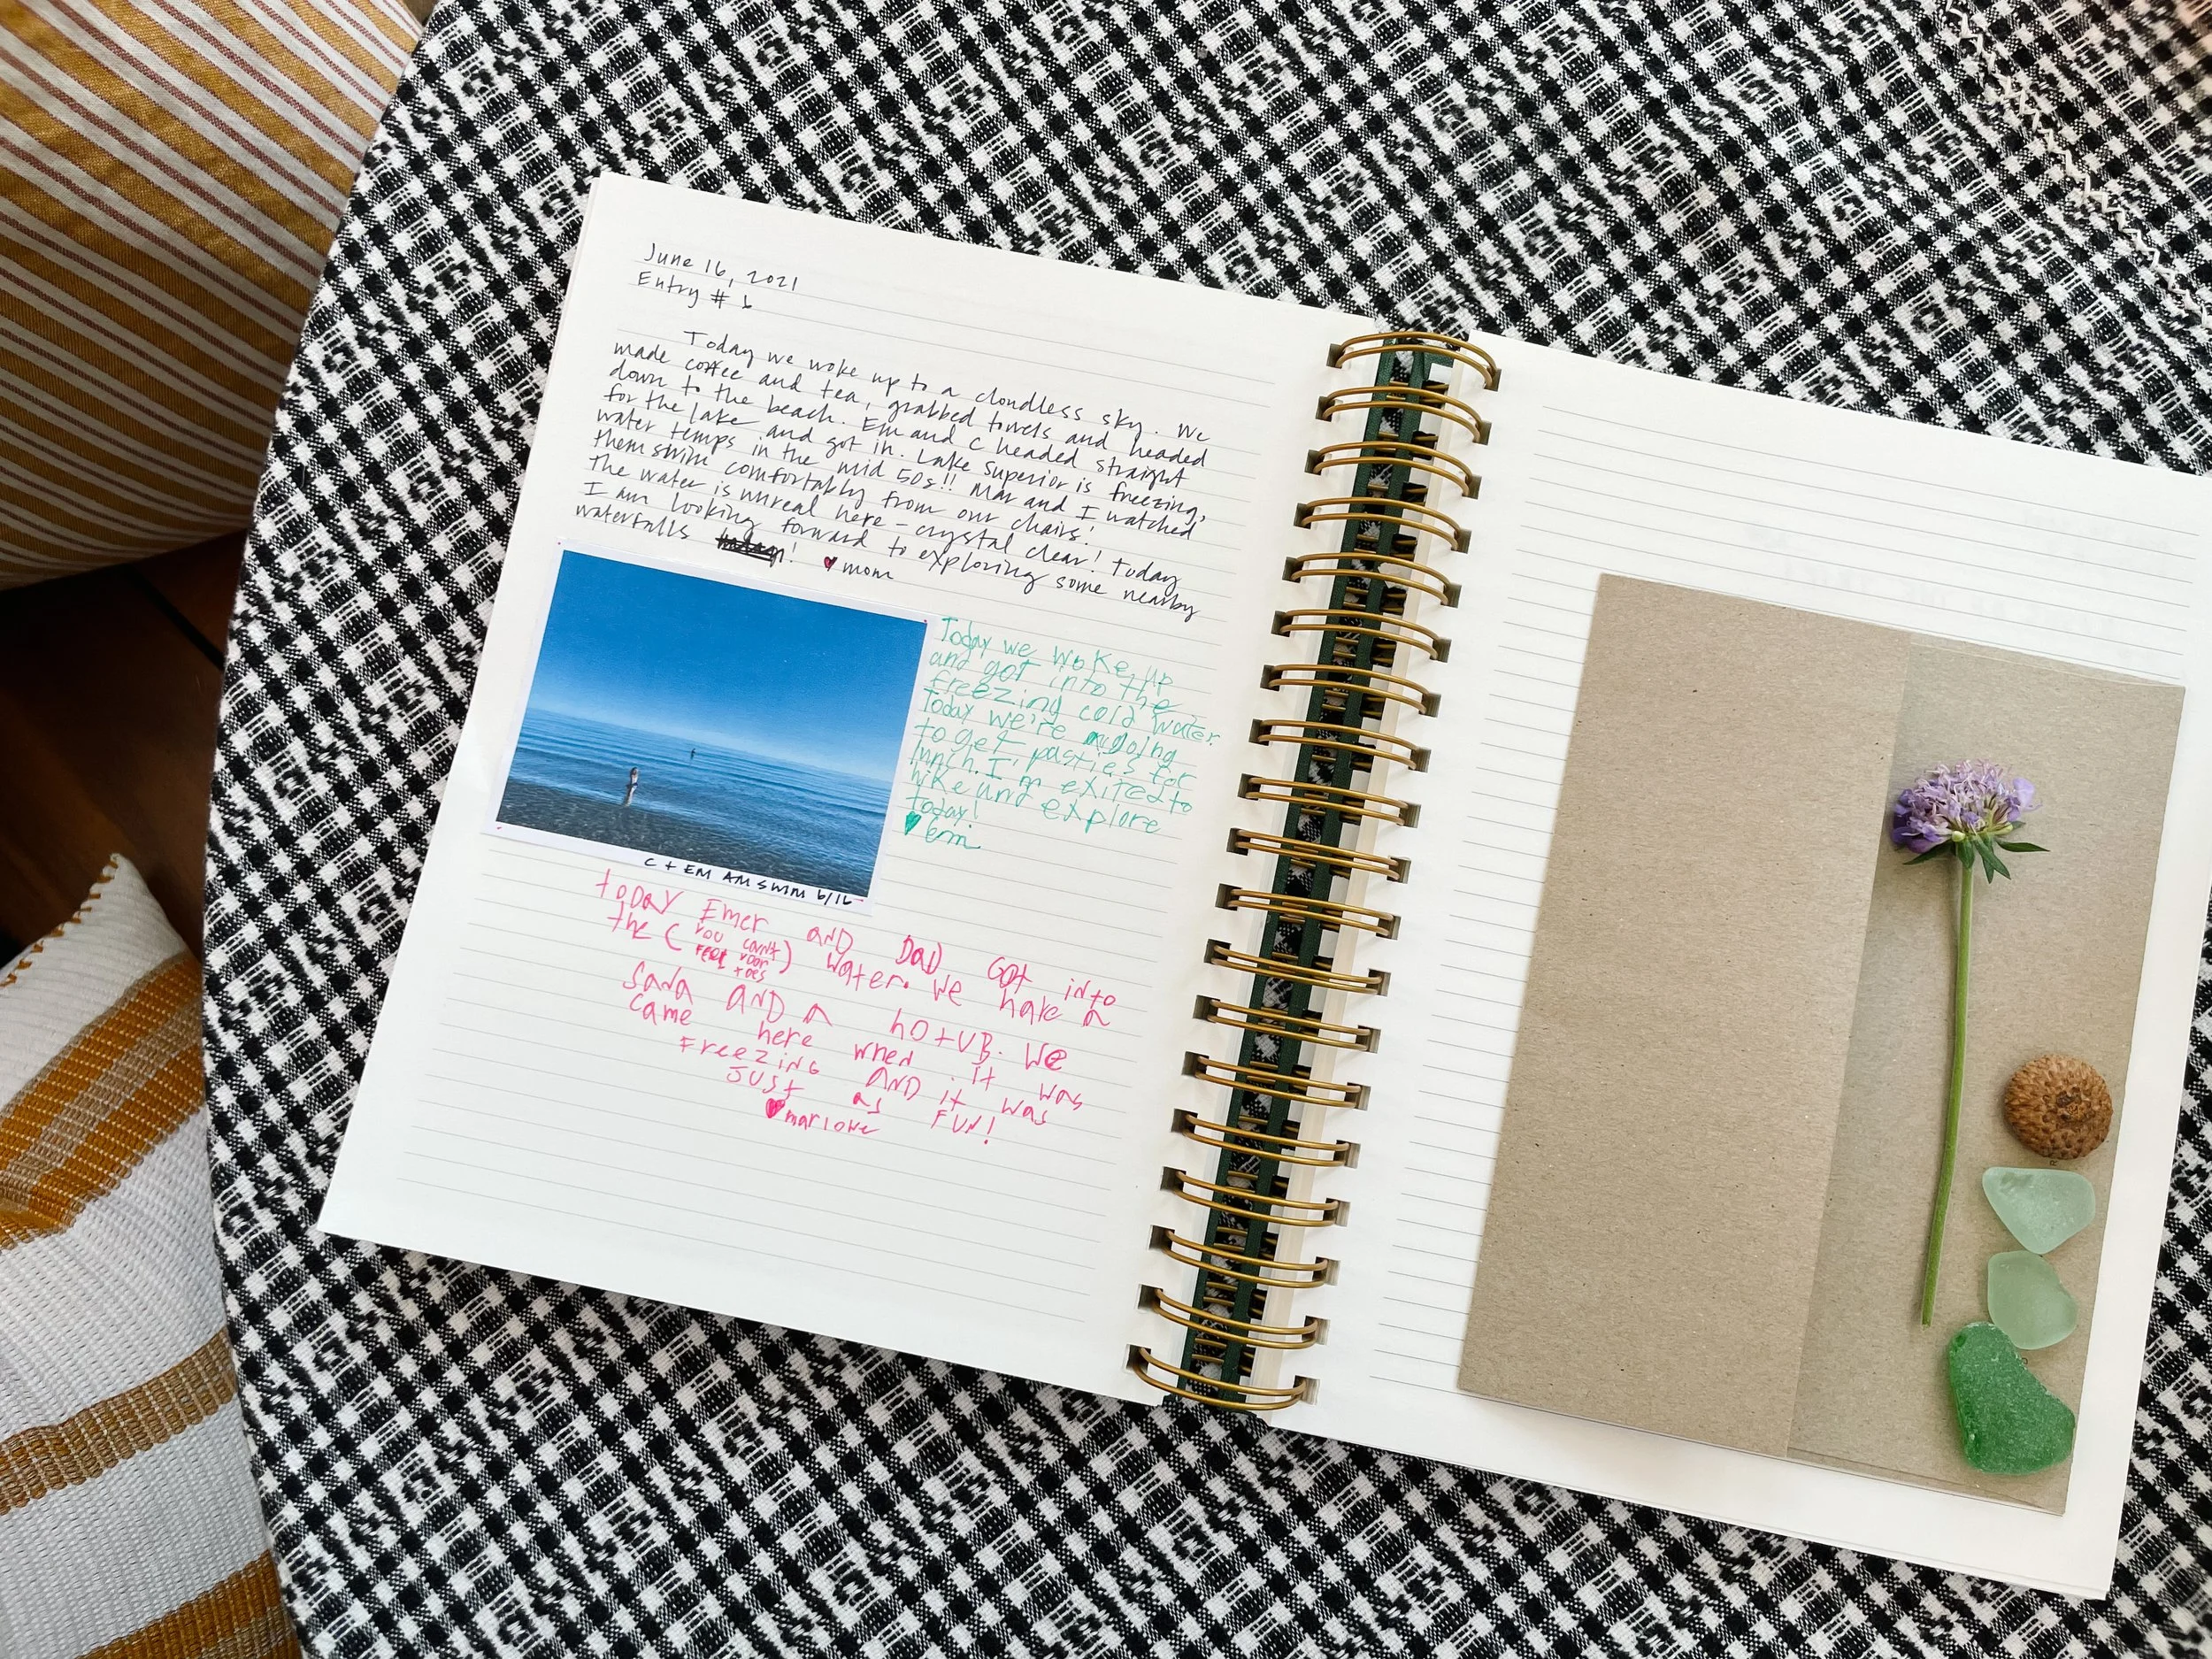 June 16, 2021
Entry # 1
Today we woke up to a cloudless sky. We
made coffee and tea, grabbed towels and headed
down to the beach. Em and C headed straight
for the lake and got in. Lake Superior is freezing,
water temps in the mid 50s!! Mar and I watched
them swim comfortably from our chairs!
The water is unreal here - crystal clear! Today
I am looking forward to exploring some nearby
waterfalls ! ♥ mom
Today we woke up
and got into the
freezing cold water.
Today we're going
to get pasties for
lunch. I'm exited to
hike and explore
today!
♥ Em
C + EM AM SWIM 6/16
toDAY Emer AND DaD Got into
the ( YOU CAN'T FEEL YOOR toes ) water. We hake a
SaNa AND a hOtUB. We
came here when it was
FreezinG AND it was
JUSt as FUN!
♥ marlowe